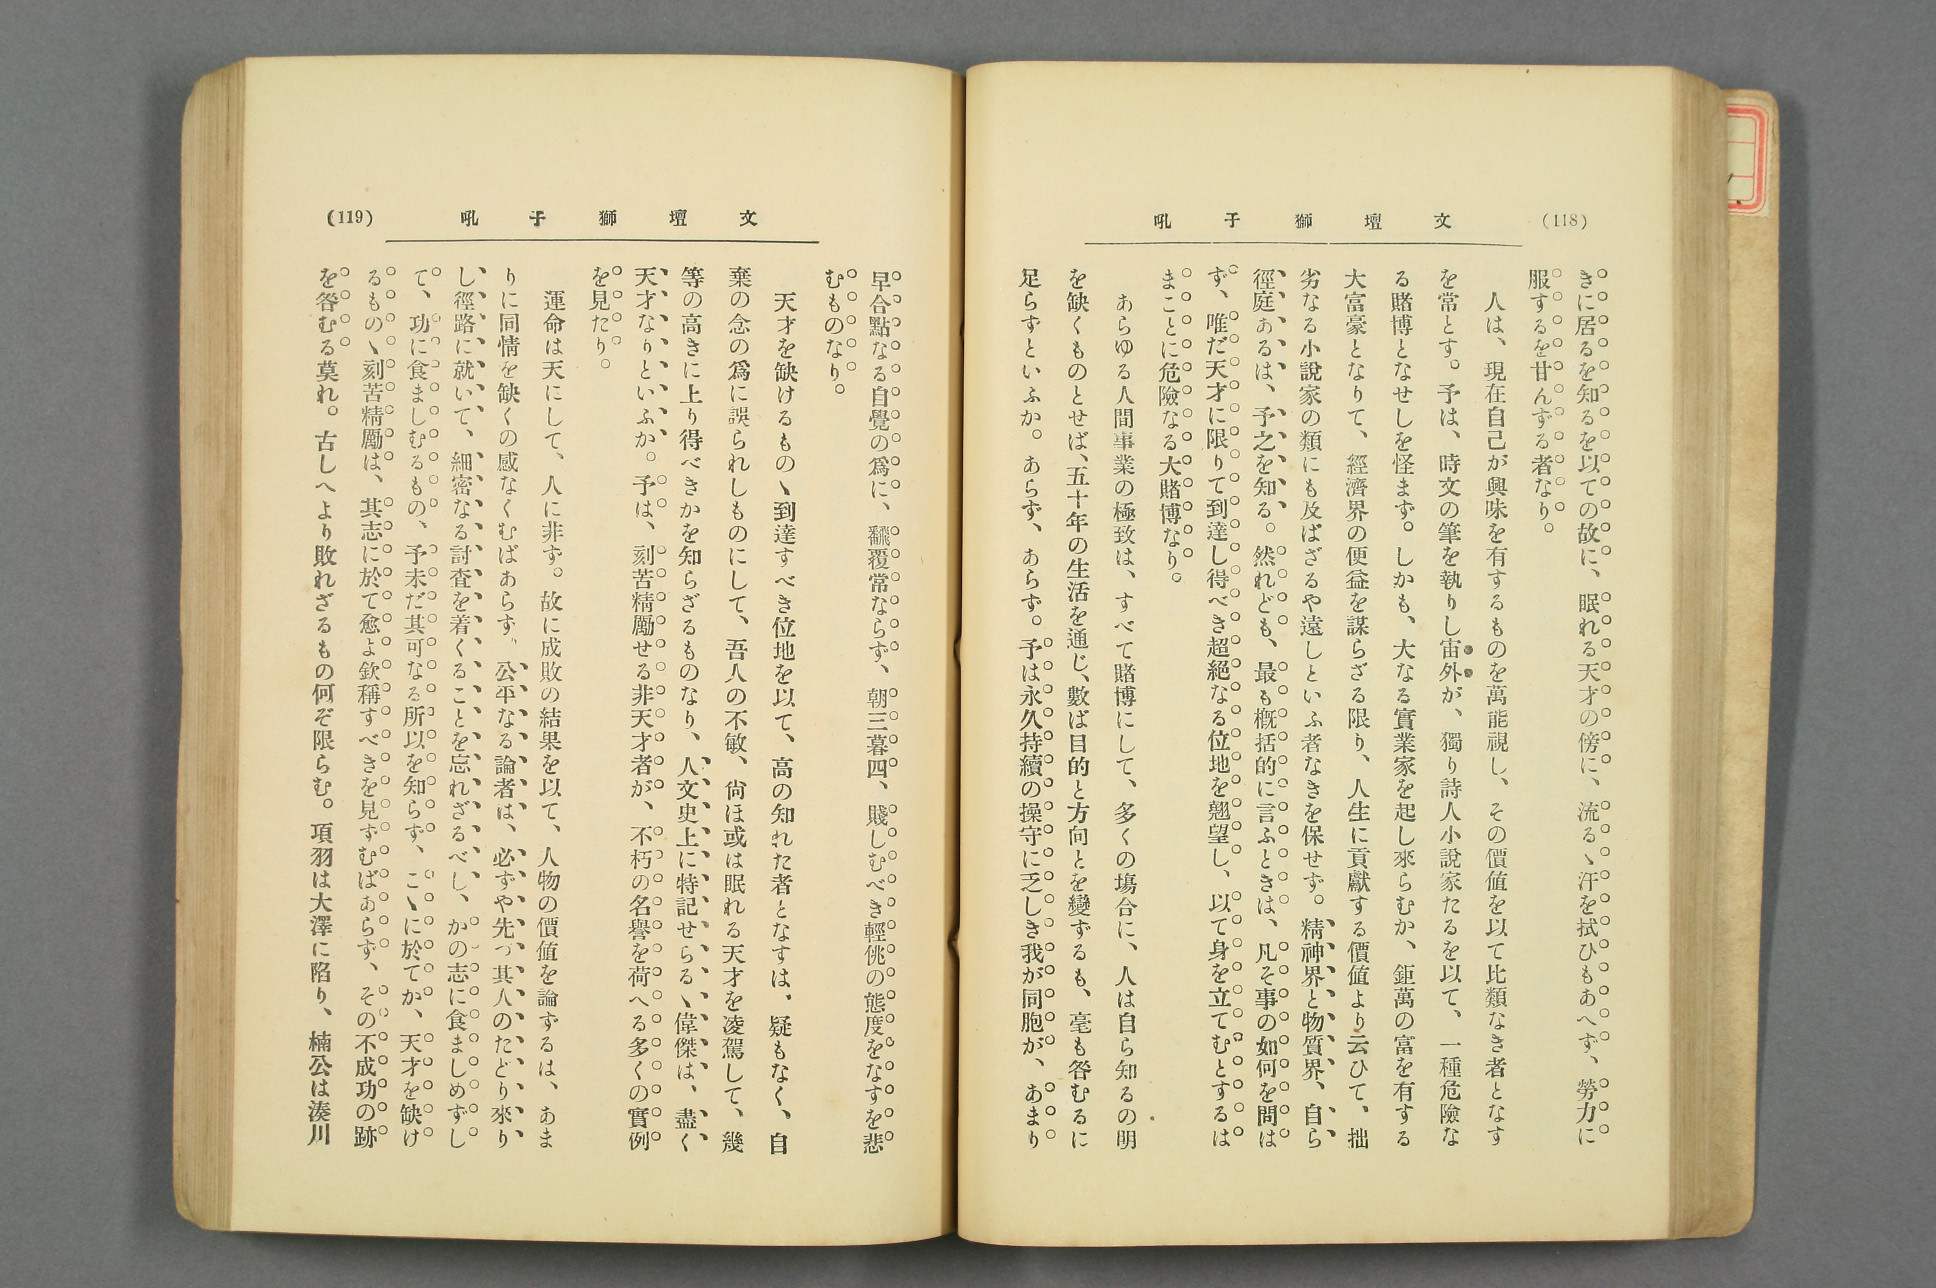 (118)
文壇獅子吼
きに居るを知るを以ての故に、眠れる天才の傍に、流るゝ汗を拭ひもあへず、勞力に
服するを甘んずる者なり。
人は、現在自己が興味を有するものを萬能視し、その價値を以て比類なき者となす
を常とす。予は、時文の筆を執りし宙外が、獨り詩人小說家たるを以て、一種危險な
る賭博となせしを怪ます。しかも、大なる實業家を起し來らむか、鉅萬の富を有する
大富豪となりて、經濟界の便益を謀らざる限り、人生に貢獻する價値より云ひて、拙
劣なる小說家の類にも及ばざるや遠しといふ者なきを保せず。精神界と物質界、自ら
徑庭あるは、予之を知る。然れども、最も槪括的に言ふときは、凡そ事の如何を問は
ず、唯だ天才に限りて到達し得べき超絕なる位地を翹望し、以て身を立てむとするは
まことに危險なる大賭博なり。
あらゆる人間事業の極致は、すべて賭博にして、多くの塲合に、人は自ら知るの明
を缺くものとせば、五十年の生活を通じ、數ば目的と方向とを變ずるも、毫も咎むるに
足らずといふか。あらず、あらず。予は永久持續の操守に乏しき我が同胞が、あまり
文壇獅子吼
(119)
早合點なる自覺の爲に、飜覆常ならず、朝三暮四、賤しむべき輕佻の態度をなすを悲
むものなり。
天才を缺けるものゝ到達すべき位地を以て、高の知れた者となすは、疑もなく、自
棄の念の爲に誤られしものにして、吾人の不敏、尙ほ或は眠れる天才を凌駕して、幾
等の高きに上り得べきかを知らざるものなり、人文史上に特記せらるゝ偉傑は、盡く
天才なりといふか。予は、刻苦精勵せる非天才者が、不朽の名譽を荷へる多くの實例
を見たり。
運命は天にして、人に非ず。故に成敗の結果を以て、人物の價値を論ずるは、あま
りに同情を缺くの感なくむばあらず、公平なる論者は、必ずや先づ其人のたどり來り
し徑路に就いて、細密なる討査を着くることを忘れざるべし、かの志に食ましめずし
て、功に食ましむるもの、予未だ其可なる所以を知らず、こゝに於てか、天才を缺け
るものゝ刻苦精勵は、其志に於て愈よ欽稱すべきを見ずむばあらず、その不成功の跡
を咎むる莫れ。古しへより敗れざるもの何ぞ限らむ。項羽は大澤に陷り、楠公は湊川